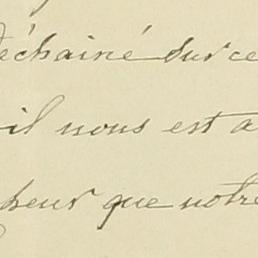 déchainé sur ce
il nous est a
heur que notre